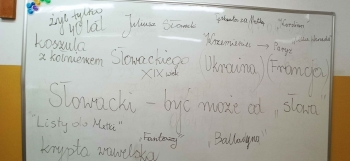 żył tylko 40 lat
Juliusz Słowacki
Koszula z kołnierzem Słowackiego
XIX wiek
Krzemieniec → Paryż
(Ukraina) (Francja)
Słowacki – być może od „słowa”
"Listy do Matki"
„Fantazy”
„Balladyna”
krypta wawelska